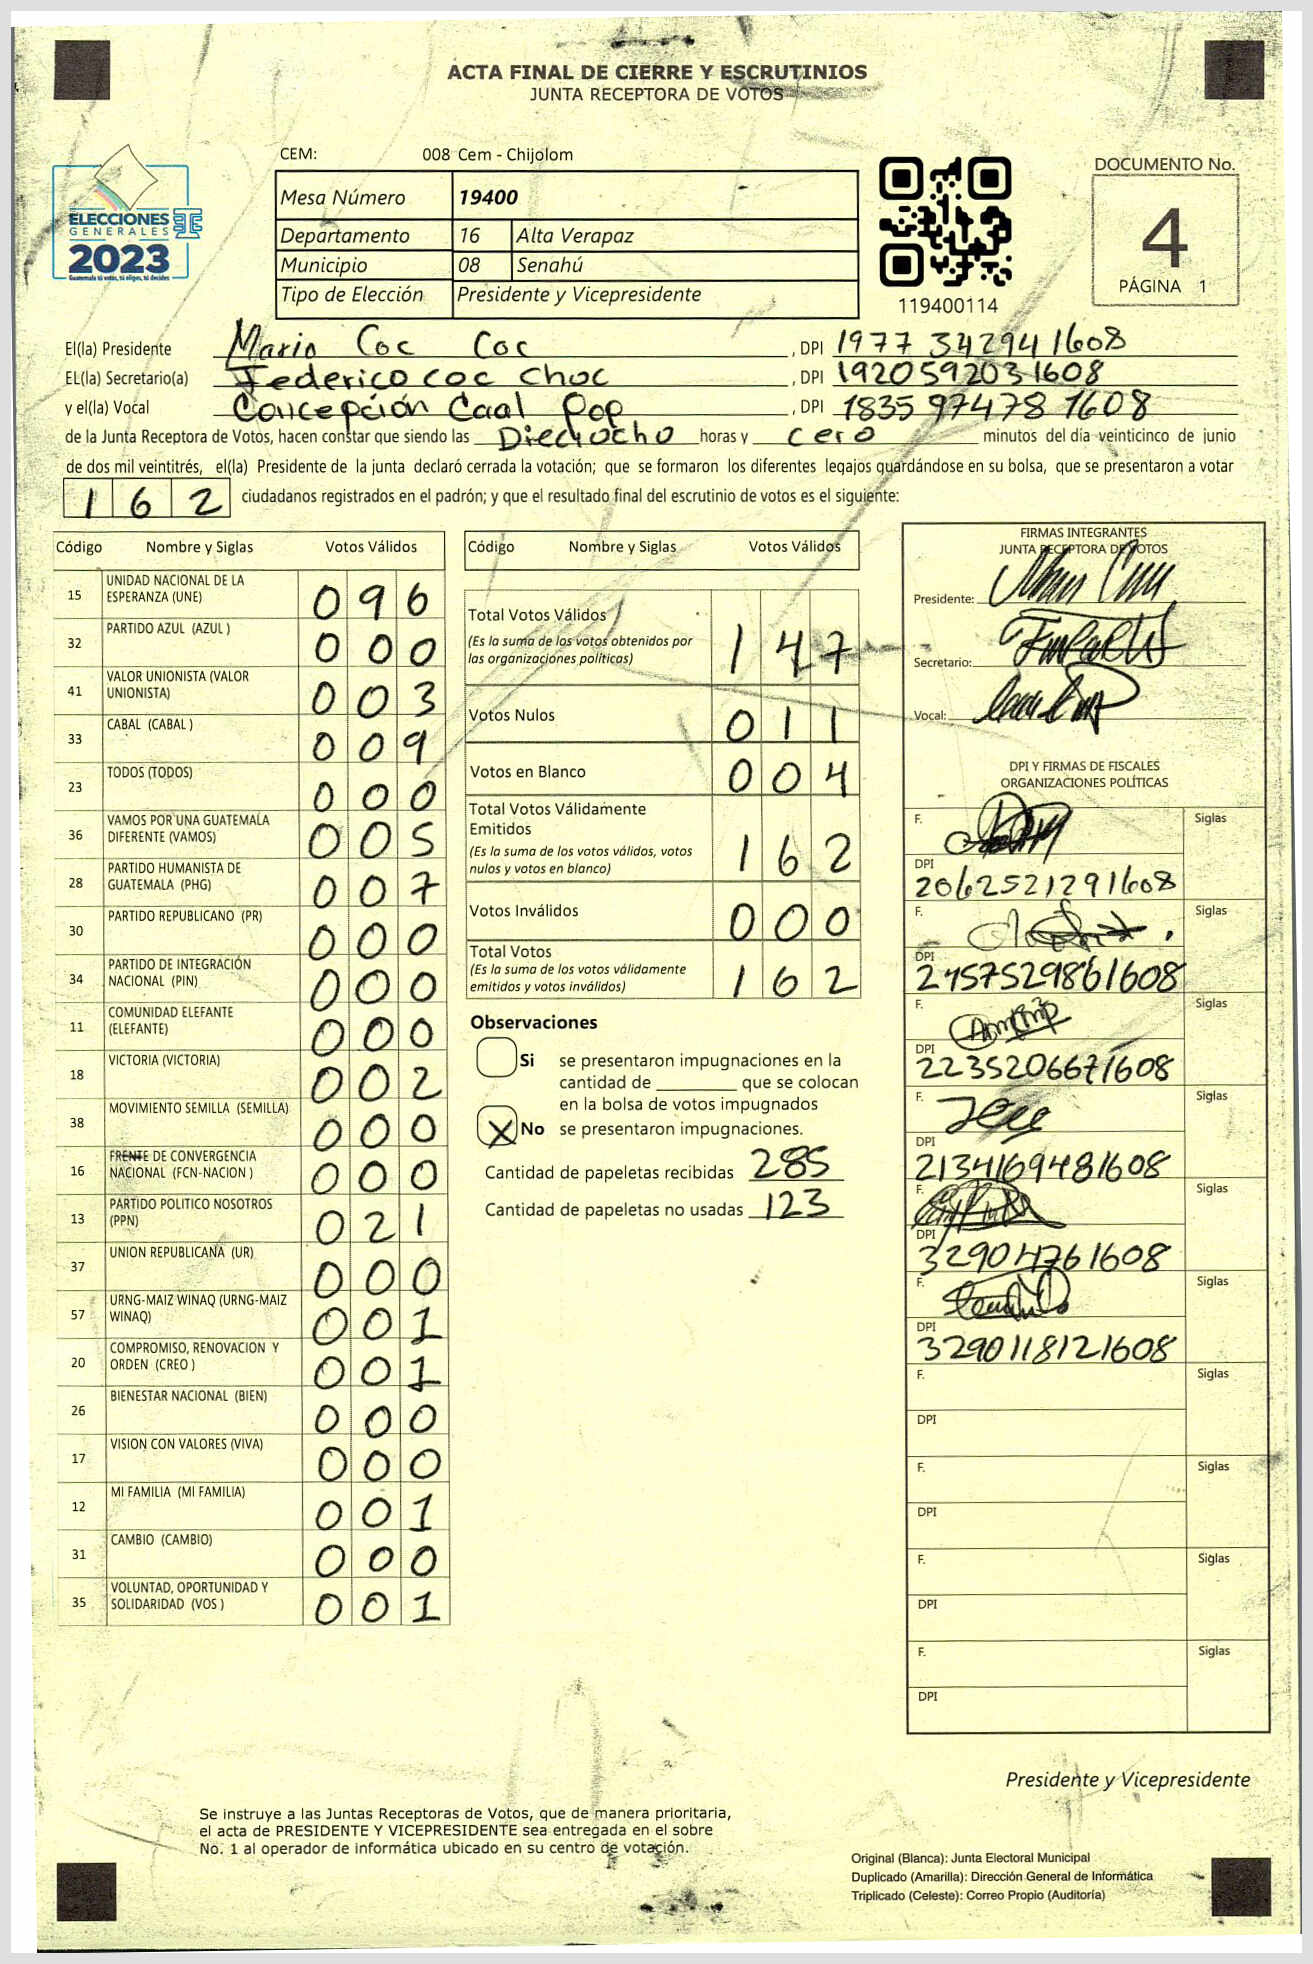 ACTA FINAL DE CIERRE Y ESCRUTINIOS
JUNTA RECEPTORA DE VOTOS
ELECCIONES
GENERALES
2023
Guatemala tú votas, tú eliges, tú decides
CEM: 008 Cem - Chijolom
Mesa Número 19400
Departamento 16 Alta Verapaz
Municipio 08 Senahú
Tipo de Elección Presidente y Vicepresidente
119400114
DOCUMENTO No.
4
PÁGINA 1
El(la) Presidente Mario Coc Coc , DPI 1977 34294 1608
EL(la) Secretario(a) Federico coc choc , DPI 1920592031608
y el(la) Vocal Concepción Caal Pop , DPI 1835 97478 1608
de la Junta Receptora de Votos, hacen constar que siendo las Dieciocho horas y cero minutos del día veinticinco de junio
de dos mil veintitrés, el(la) Presidente de la junta declaró cerrada la votación; que se formaron los diferentes legajos guardándose en su bolsa, que se presentaron a votar
162 ciudadanos registrados en el padrón; y que el resultado final del escrutinio de votos es el siguiente:
Código Nombre y Siglas Votos Válidos
15 UNIDAD NACIONAL DE LA ESPERANZA (UNE) 096
32 PARTIDO AZUL (AZUL ) 000
41 VALOR UNIONISTA (VALOR UNIONISTA) 003
33 CABAL (CABAL ) 009
23 TODOS (TODOS) 000
36 VAMOS POR UNA GUATEMALA DIFERENTE (VAMOS) 005
28 PARTIDO HUMANISTA DE GUATEMALA (PHG) 007
30 PARTIDO REPUBLICANO (PR) 000
34 PARTIDO DE INTEGRACIÓN NACIONAL (PIN) 000
11 COMUNIDAD ELEFANTE (ELEFANTE) 000
18 VICTORIA (VICTORIA) 002
38 MOVIMIENTO SEMILLA (SEMILLA) 000
16 FRENTE DE CONVERGENCIA NACIONAL (FCN-NACION ) 000
13 PARTIDO POLITICO NOSOTROS (PPN) 021
37 UNION REPUBLICANA (UR) 000
57 URNG-MAIZ WINAQ (URNG-MAIZ WINAQ) 001
20 COMPROMISO, RENOVACION Y ORDEN (CREO ) 001
26 BIENESTAR NACIONAL (BIEN) 000
17 VISION CON VALORES (VIVA) 000
12 MI FAMILIA (MI FAMILIA) 001
31 CAMBIO (CAMBIO) 000
35 VOLUNTAD, OPORTUNIDAD Y SOLIDARIDAD (VOS ) 001
Código Nombre y Siglas Votos Válidos
Total Votos Válidos 147
(Es la suma de los votos obtenidos por
las organizaciones políticas)
Votos Nulos 011
Votos en Blanco 004
Total Votos Válidamente
Emitidos 162
(Es la suma de los votos válidos, votos
nulos y votos en blanco)
Votos Inválidos 000
Total Votos 162
(Es la suma de los votos válidamente
emitidos y votos inválidos)
Observaciones
Si se presentaron impugnaciones en la
cantidad de ________ que se colocan
en la bolsa de votos impugnados
X No se presentaron impugnaciones.
Cantidad de papeletas recibidas 285
Cantidad de papeletas no usadas 123
FIRMAS INTEGRANTES
JUNTA RECEPTORA DE VOTOS
Presidente:
Secretario:
Vocal:
DPI Y FIRMAS DE FISCALES
ORGANIZACIONES POLÍTICAS
F. Siglas
DPI
2062521291608
F. Siglas
DPI
2457529861608
F. Siglas
DPI
2235206671608
F. Siglas
DPI
2134169481608
F. Siglas
DPI
329047761608
F. Siglas
DPI
3290118121608
F. Siglas
DPI
F. Siglas
DPI
F. Siglas
DPI
F. Siglas
DPI
Presidente y Vicepresidente
Se instruye a las Juntas Receptoras de Votos, que de manera prioritaria,
el acta de PRESIDENTE Y VICEPRESIDENTE sea entregada en el sobre
No. 1 al operador de informática ubicado en su centro de votación.
Original (Blanca): Junta Electoral Municipal
Duplicado (Amarilla): Dirección General de Informática
Triplicado (Celeste): Correo Propio (Auditoría)